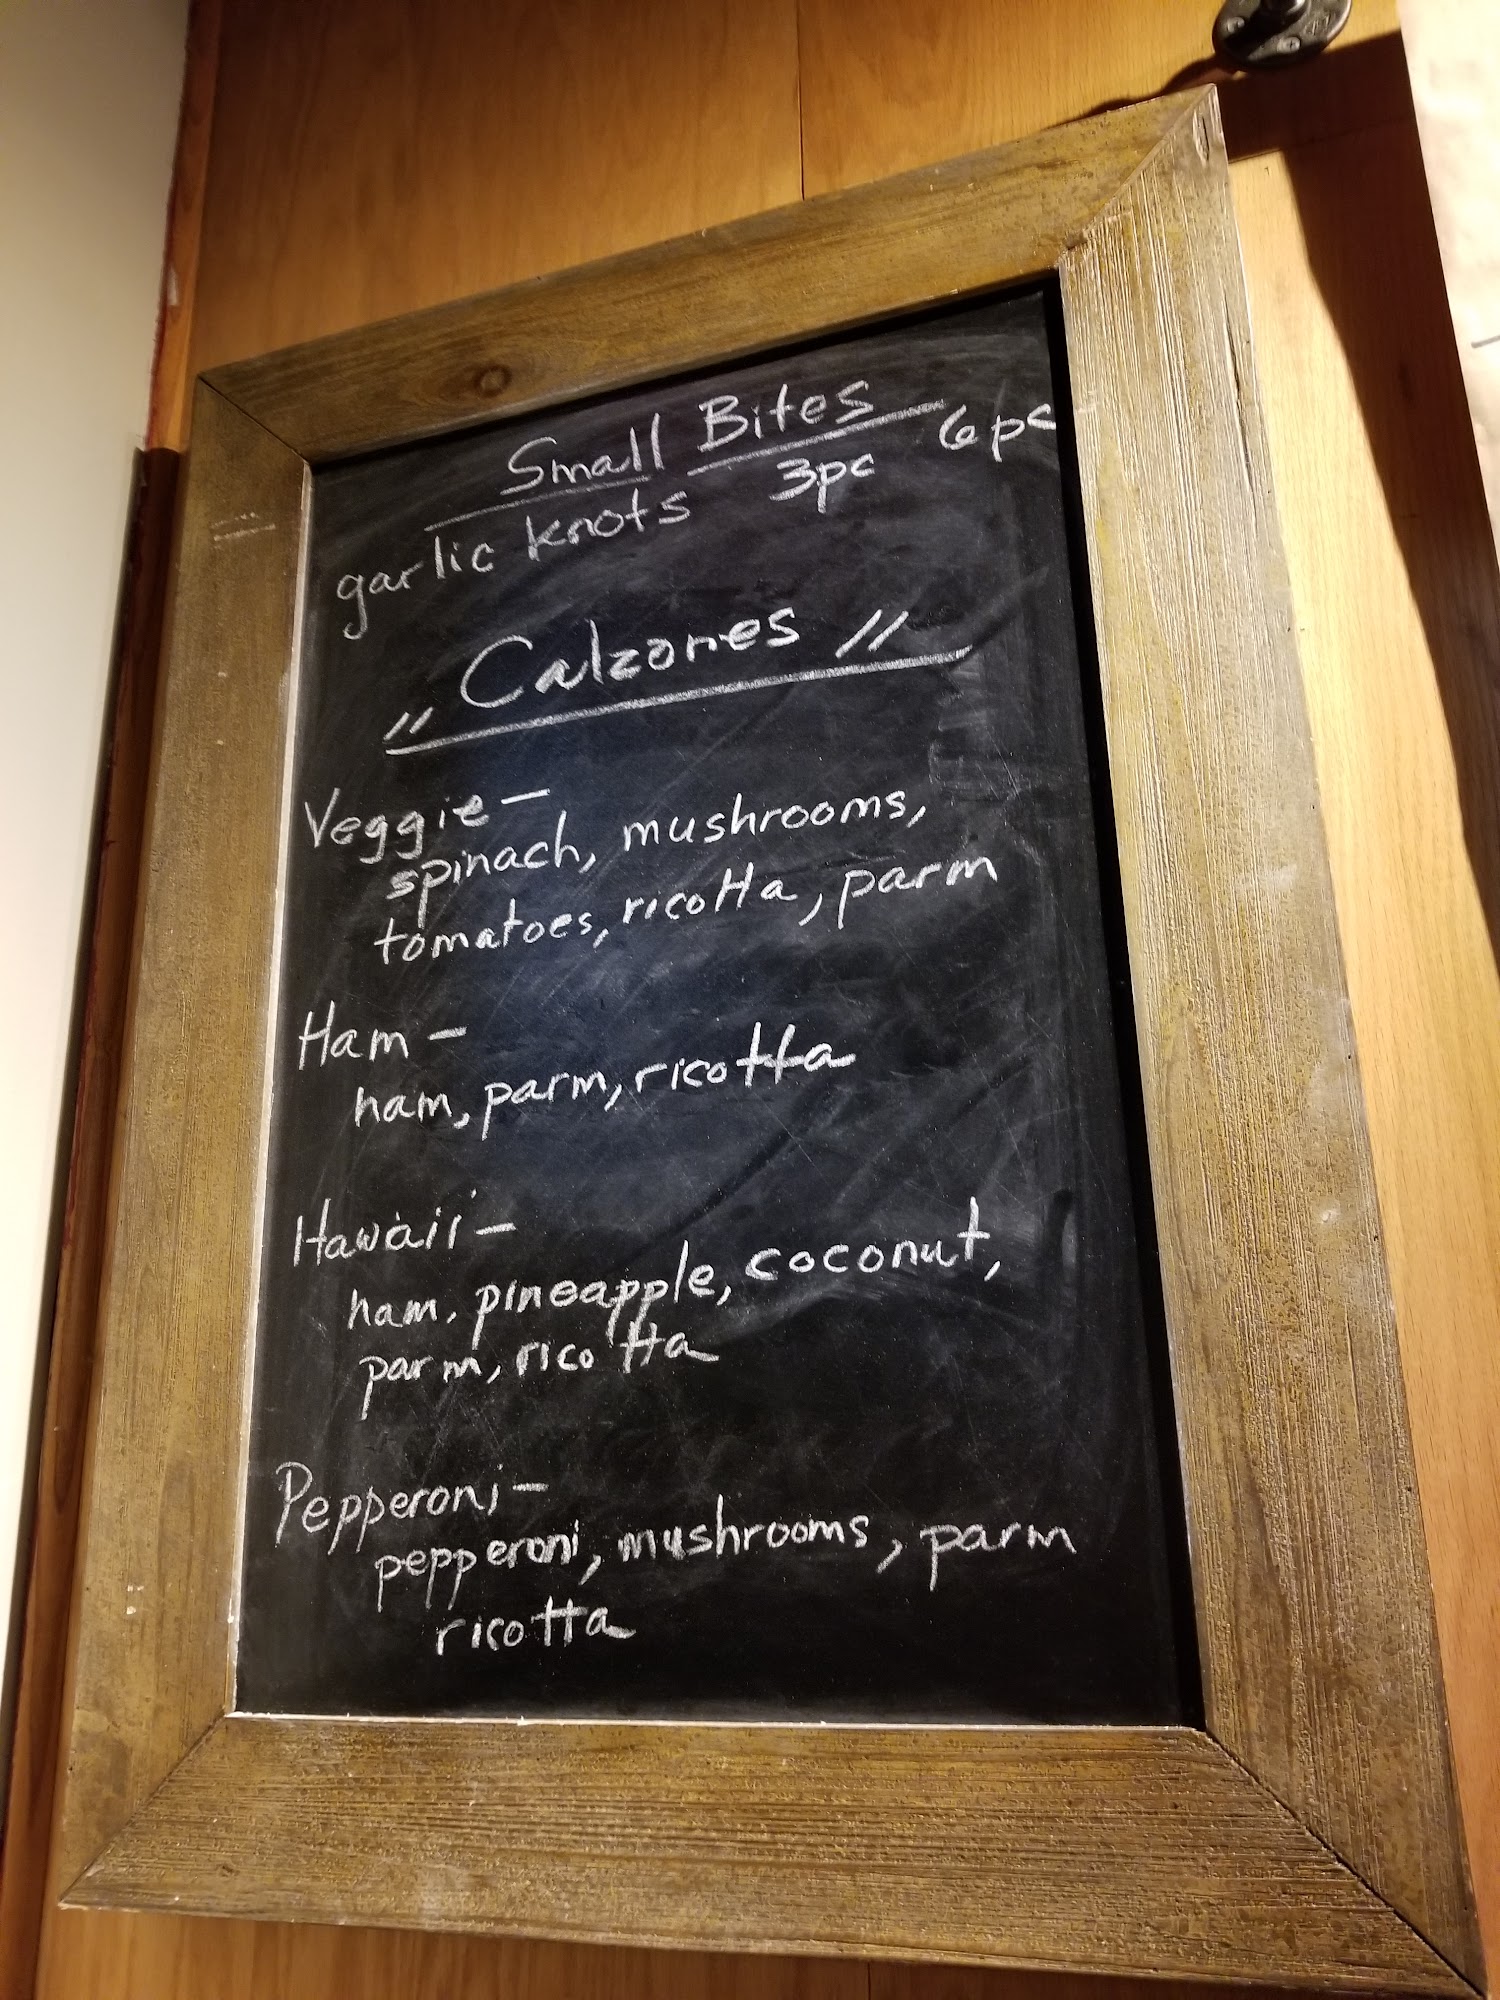 Small Bites
garlic knots 3pc 6pc
" Calzones "
Veggie -
spinach, mushrooms,
tomatoes, ricotta, parm
Ham -
ham, parm, ricotta
Hawaii -
ham, pineapple, coconut,
parm, ricotta
Pepperoni -
pepperoni, mushrooms, parm
ricotta